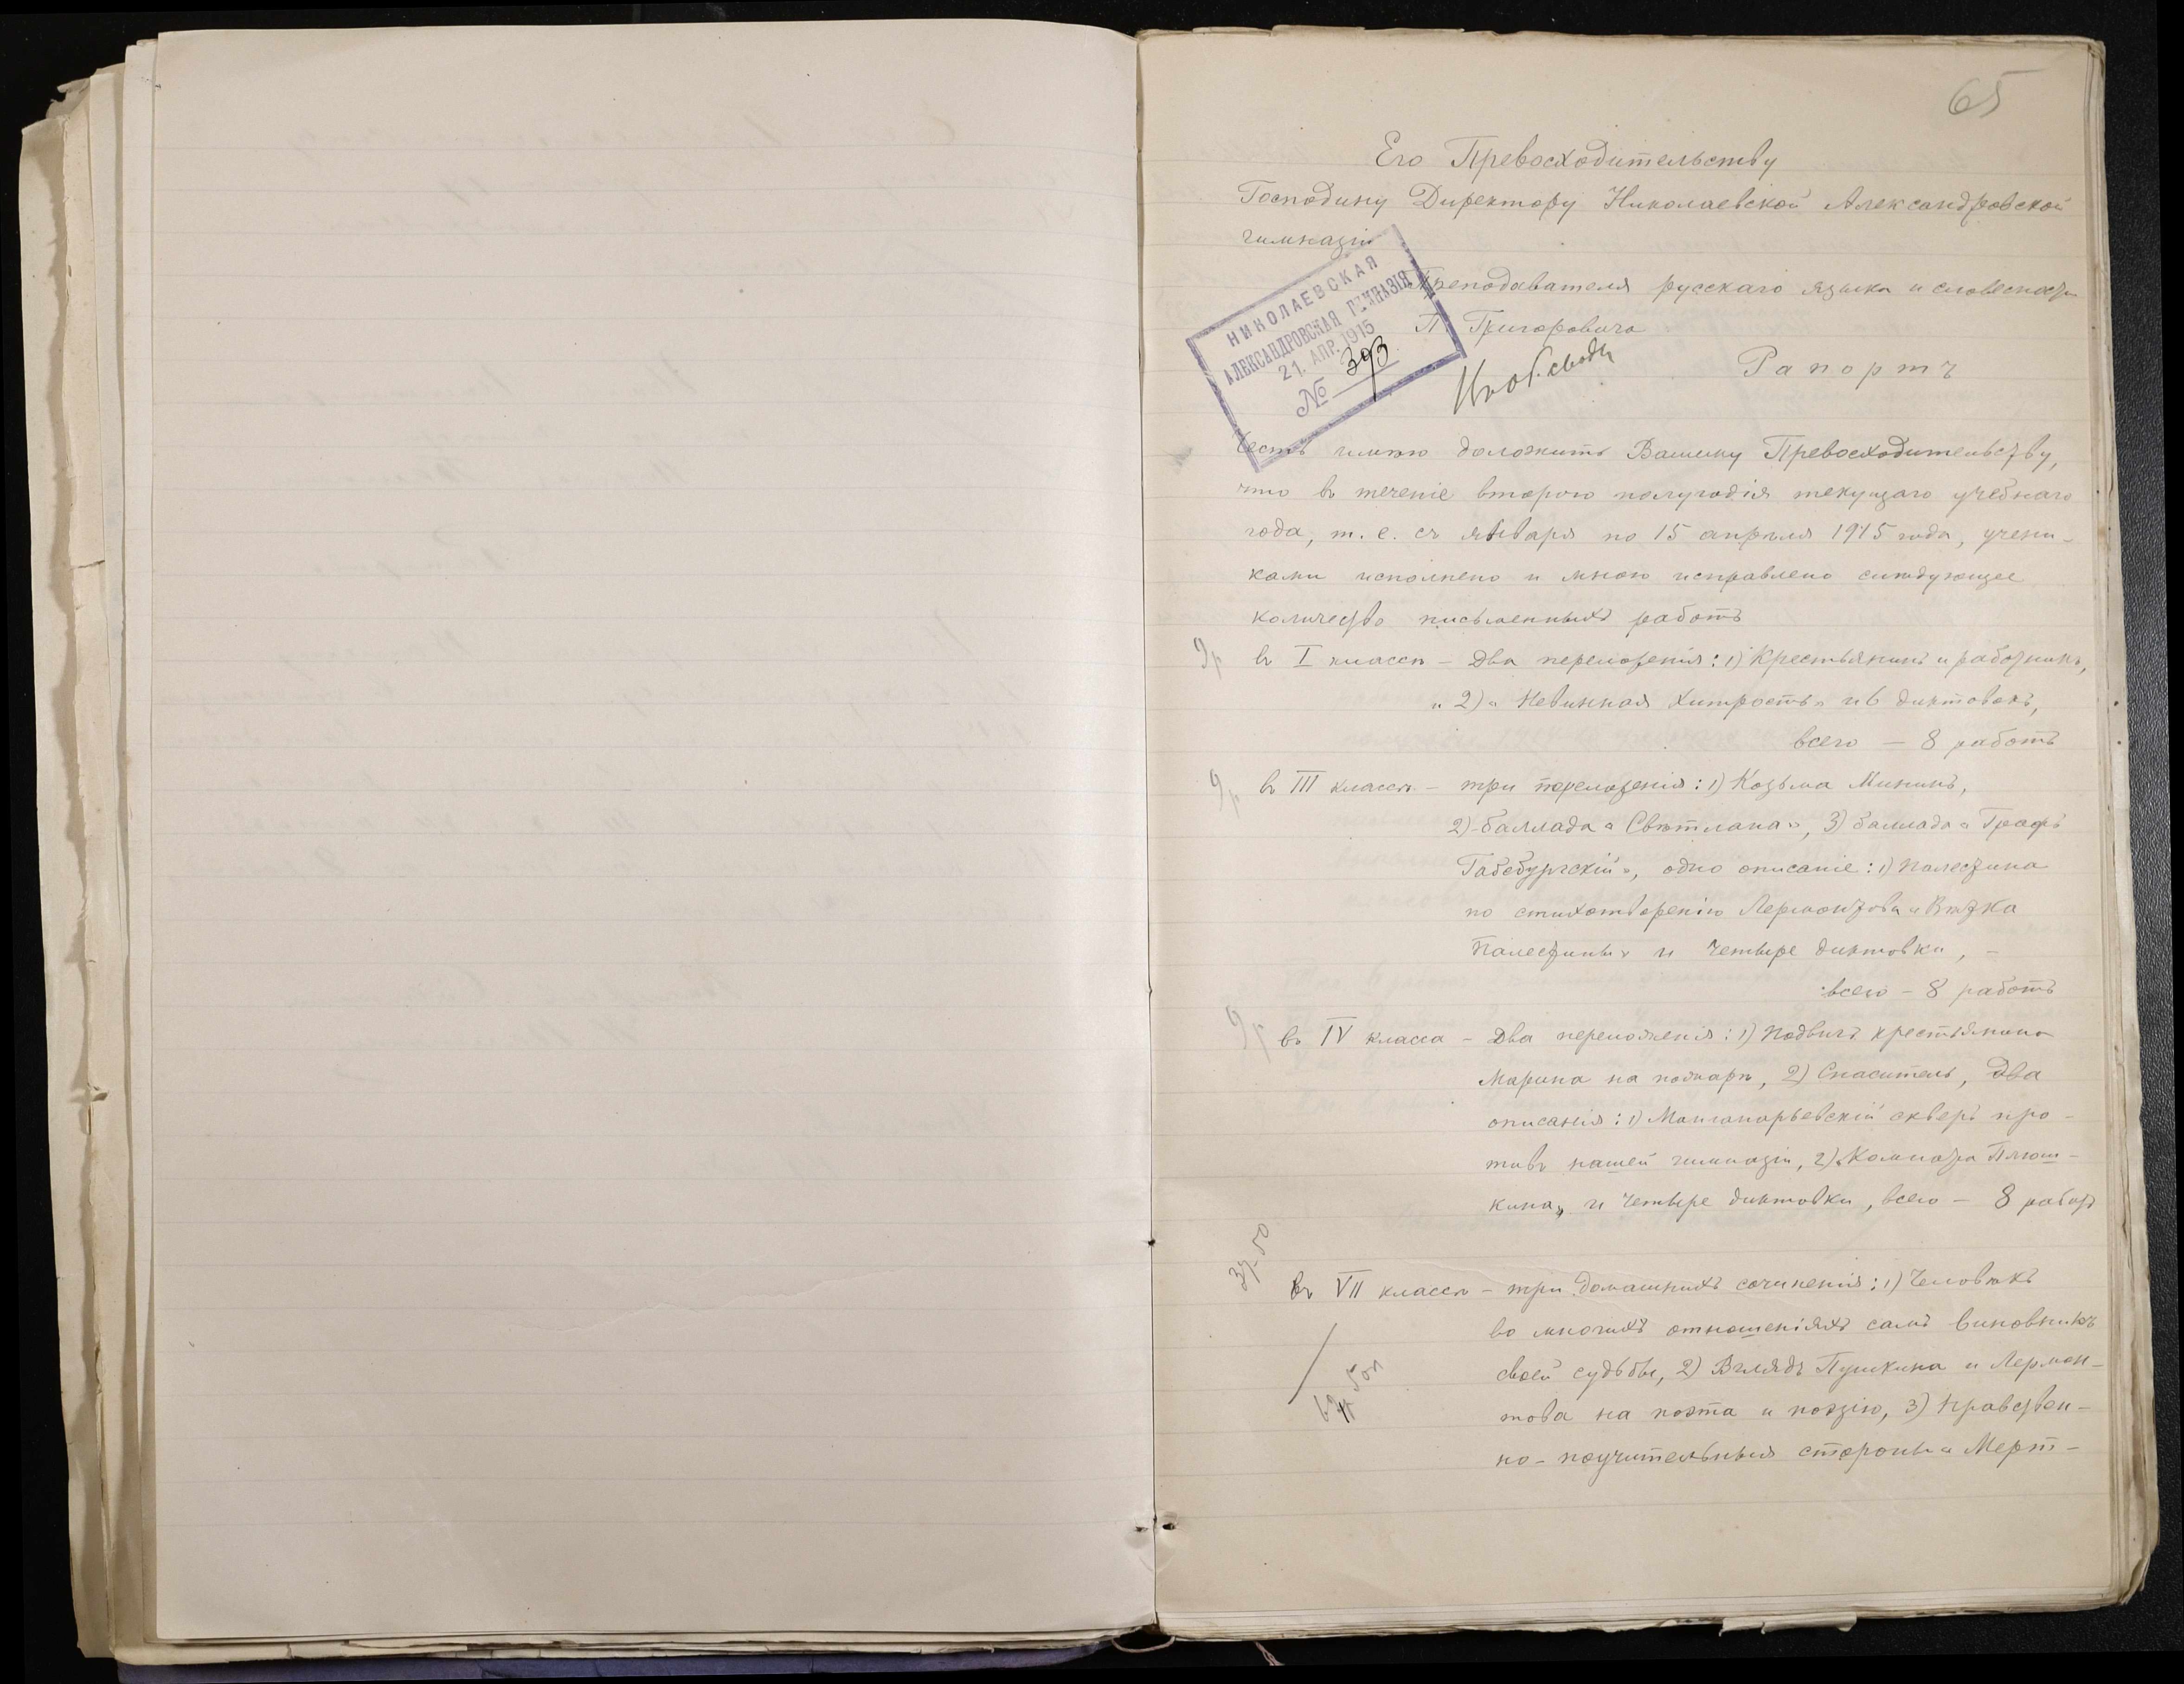 65
Его Превосходительству
Господину Директору Николаевской Александровской
гимназіи
Преподавателя русскаго языка и словесности
П. Григоровича
НИКОЛАЕВСКАЯ
АЛЕКСАНДРОВСКАЯ ГИМНАЗІЯ
21. АПР. 1915
№ 393
Рапортъ
Честь имѣю доложить Вашему Превосходительству,
что въ теченіе второго полугодія текущаго учебнаго
года, т. е. съ января по 15 апрѣля 1915 года, учени-
ками исполнено и мною исправлено слѣдующее
количество письменныхъ работъ
9р
въ I классѣ – два переложенія: 1) Крестьянинъ и работникъ,
и 2) „Невинная хитрость" и 6 диктовокъ,
всего – 8 работъ
9р
въ III классѣ – три переложенія: 1) Козьма Мининъ,
2) баллада „Свѣтлана", 3) баллада „Графъ
Габсбургскій", одно описаніе: 1) Палестина
по стихотворенію Лермонтова „Вѣтка
Палестины" и четыре диктовки, –
всего – 8 работъ
9р
въ IV класса – два переложенія: 1) Подвигъ крестьянина
Марина на пожарѣ, 2) Спаситель, два
описанія: 1) Манганарьевскій скверъ про-
тивъ нашей гимназіи, 2) „Комната Плюш-
кина" и четыре диктовки, всего – 8 работ
37 50
въ VII классѣ – три домашнихъ сочиненія: 1) Человѣкъ
во многихъ отношеніяхъ самъ виновникъ
своей судьбы, 2) Взглядъ Пушкина и Лермон-
това на поэта и поэзію, 3) Нравствен-
но-поучительныя стороны „Мерт-